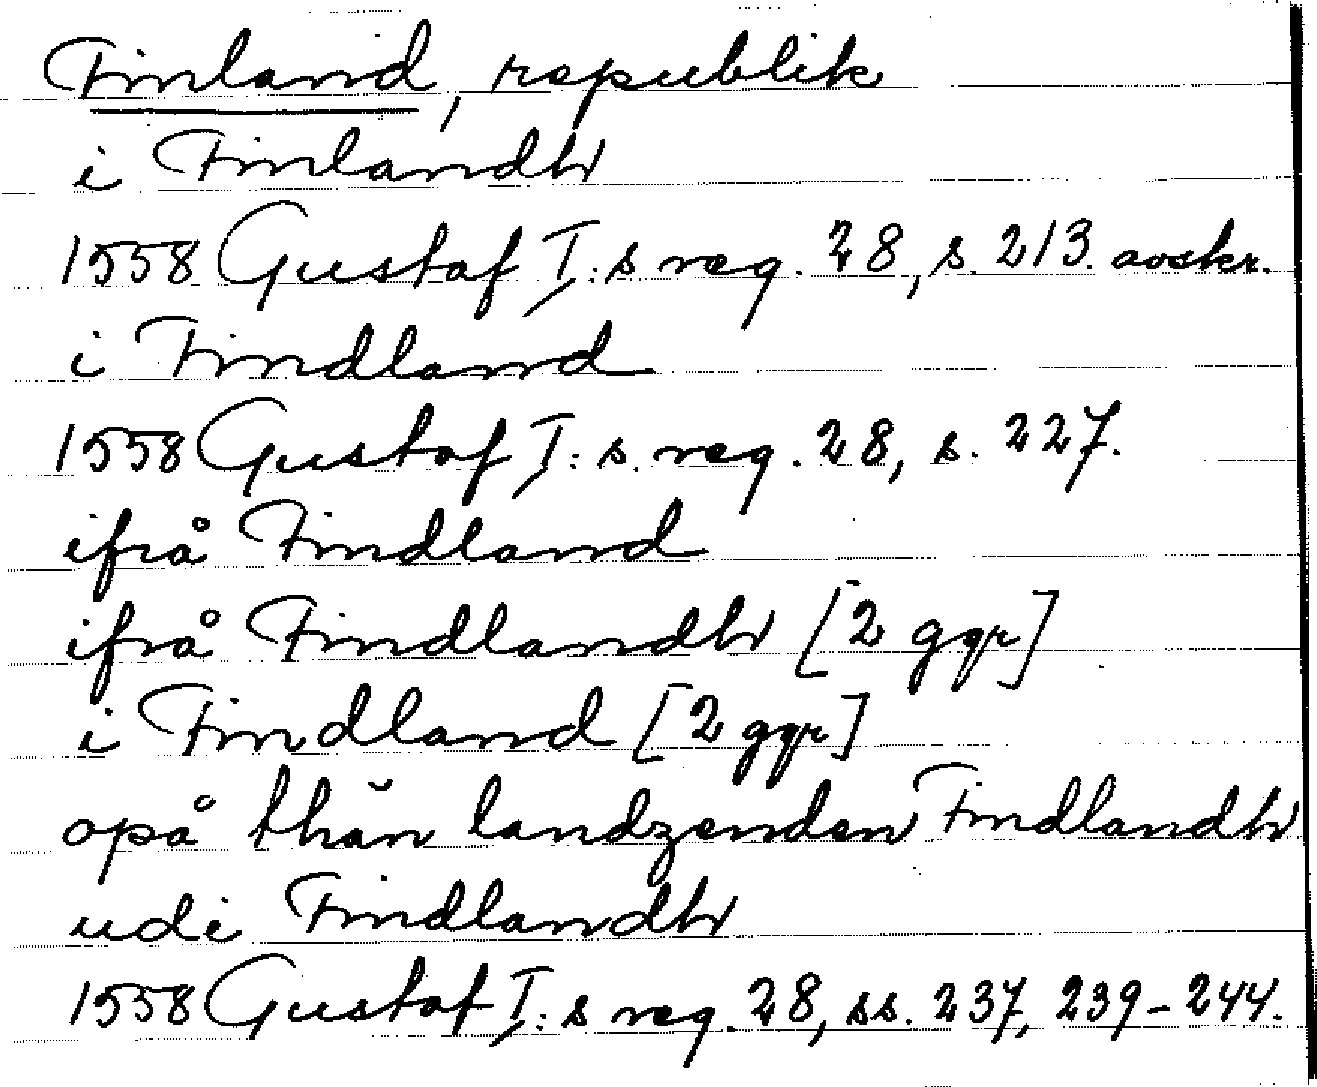 Finland, republik
i Finlandh
1558 Gustaf I:s reg. 28, s. 213. avskr.
i Findland
1558 Gustaf I:s. reg. 28, s. 227.
ifrå Findland
ifrå Findlandh [2 ggr]
i Findland [2 ggr]
opå thăn landzenden Findlandh
udi Findlandh
1558 Gustaf I:s reg. 28, ss. 237, 239-244.